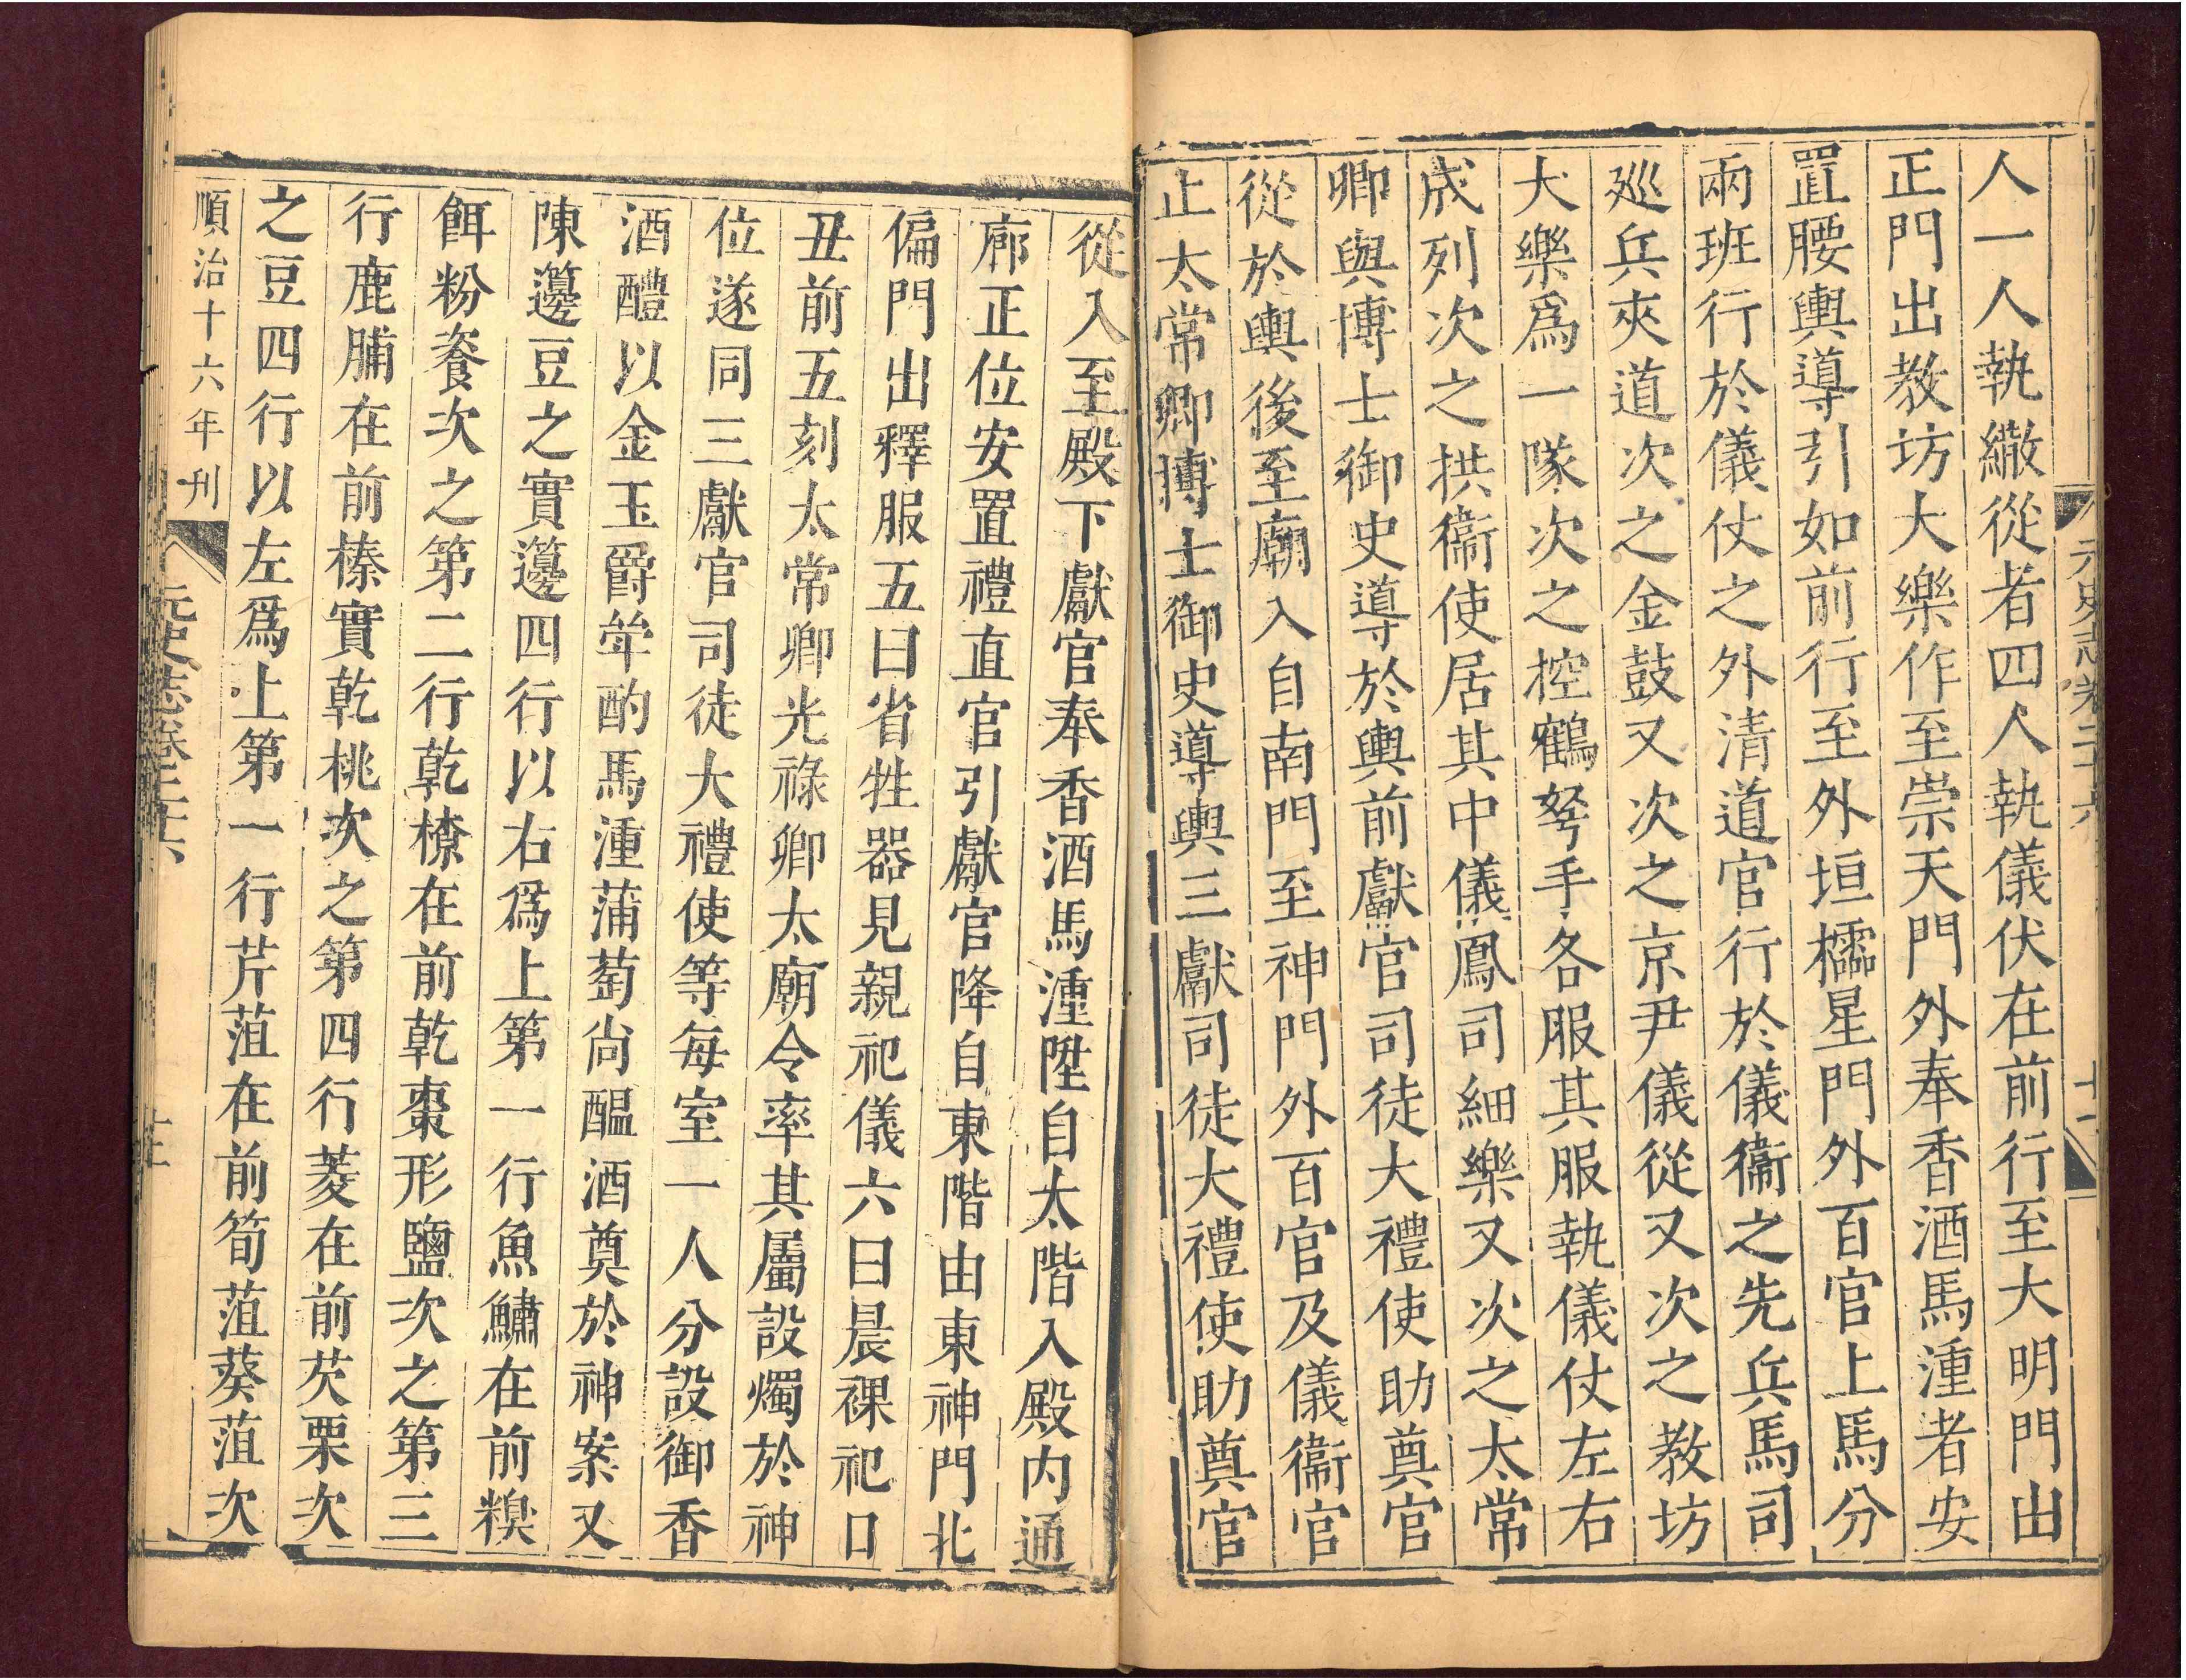 元史志卷二十六
人一人執繖從者四人執儀伏在前行至大明門出
正門出教坊大樂作至崇天門外奉香酒馬湩者安
置腰輿導引如前行至外垣櫺星門外百官上馬分
兩班行於儀仗之外清道官行於儀衞之先兵馬司
廵兵夾道次之金鼓又次之京尹儀從又次之教坊
大樂爲一隊次之控鶴弩手各服其服執儀仗左右
成列次之拱衞使居其中儀鳳司細樂又次之太常
卿與博士御史導於輿前獻官司徒大禮使助奠官
從於輿後至廟入自南門至神門外百官及儀衞官
止太常卿博士御史導輿三獻司徒大禮使助奠官
從入至殿下獻官奉香酒馬湩陞自太階入殿内通
廊正位安置禮直官引獻官降自東階由東神門北
偏門出釋服五曰省牲器見親祀儀六曰晨祼祀日
丑前五刻太常卿光祿卿太廟令率其屬設燭於神
位遂同三獻官司徒大禮使等每室一人分設御香
酒醴以金玉爵斝酌馬湩蒲萄尚醞酒奠於神案又
陳籩豆之實籩四行以右爲上第一行魚鱐在前糗
餌粉餈次之第二行乾橑在前乾棗形鹽次之第三
行鹿脯在前榛實乾桃次之第四行菱在前芡栗次
之豆四行以左爲上第一行芹菹在前筍菹葵菹次
順治十六年刋
元史志卷二十六